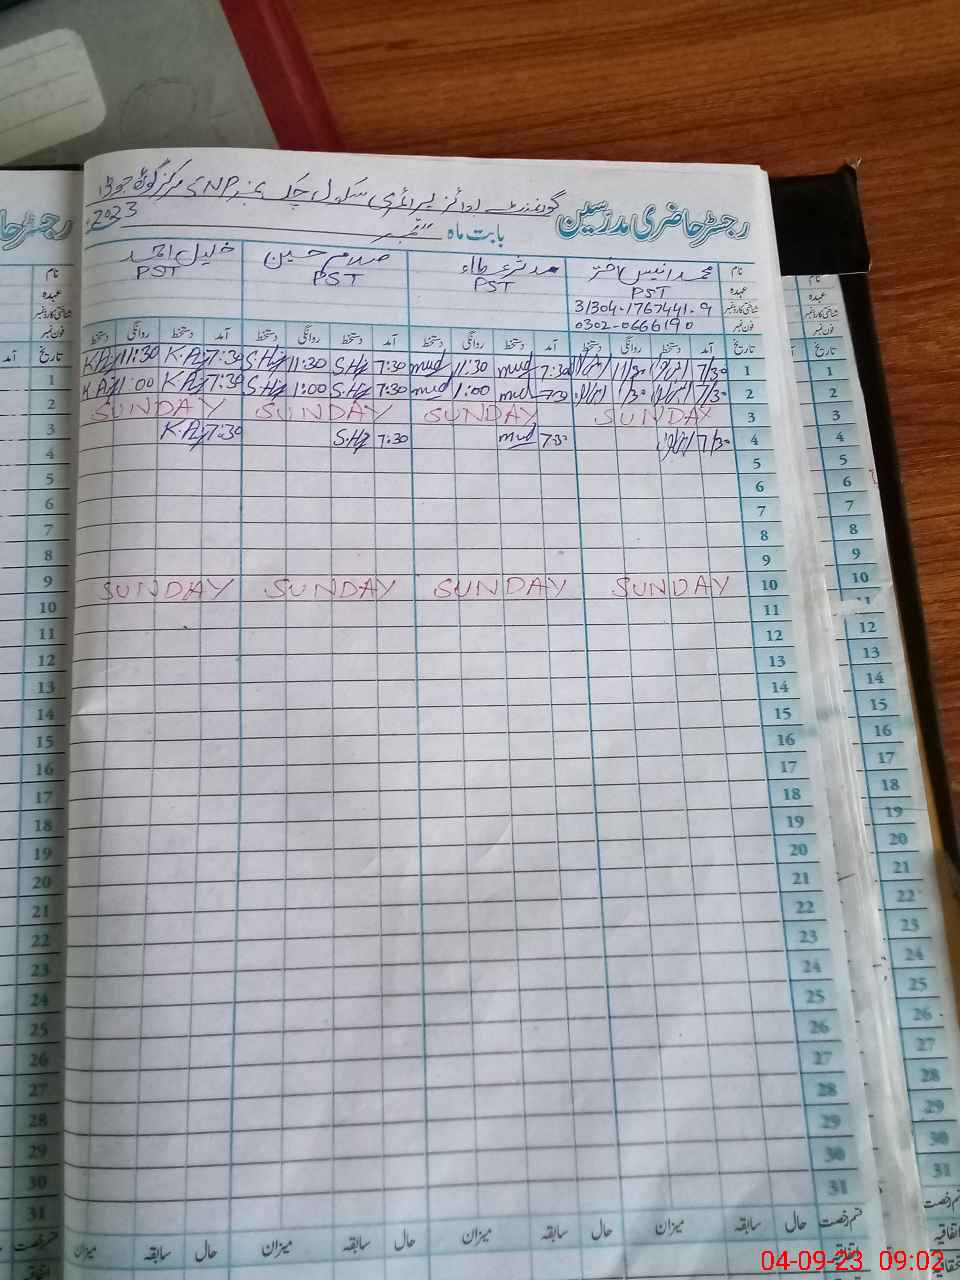 گورنمنٹ بوائز پرائمری سکول چک نمبر 5NP مرکز کوٹ
رجسٹر حاضری مدرسین بابت ماہ ستمبر 2023ء
نام محمد انیس اختر مدثر عطاء غلام حسین خلیل احمد
عہدہ PST PST PST PST
شناختی کارڈ نمبر 31304-1767441-9
فون نمبر 0302-0666190
تاریخ آمد دستخط روانگی دستخط آمد دستخط روانگی دستخط آمد دستخط روانگی دستخط آمد دستخط روانگی دستخط
1 7/30 11/30 7:30 mud 11:30 mud 7:30 S.Hz 11:30 S.Hz 7:30 11:30
2 7/30 7:30 mud 1:00 mud 7:30 S.Hz 1:00 S.Hz 7:30 1:00
3 SUNDAY SUNDAY SUNDAY SUNDAY
4 7/30 7:30 mud 7:30 S.Hz 7:30
5
6
7
8
9
10 SUNDAY SUNDAY SUNDAY SUNDAY
11
12
13
14
15
16
17
18
19
20
21
22
23
24
25
26
27
28
29
30
31
قسم رخصت حال سابقہ میزان حال سابقہ میزان حال سابقہ میزان حال سابقہ میزان
اتفاقیہ
04-09-23 09:02